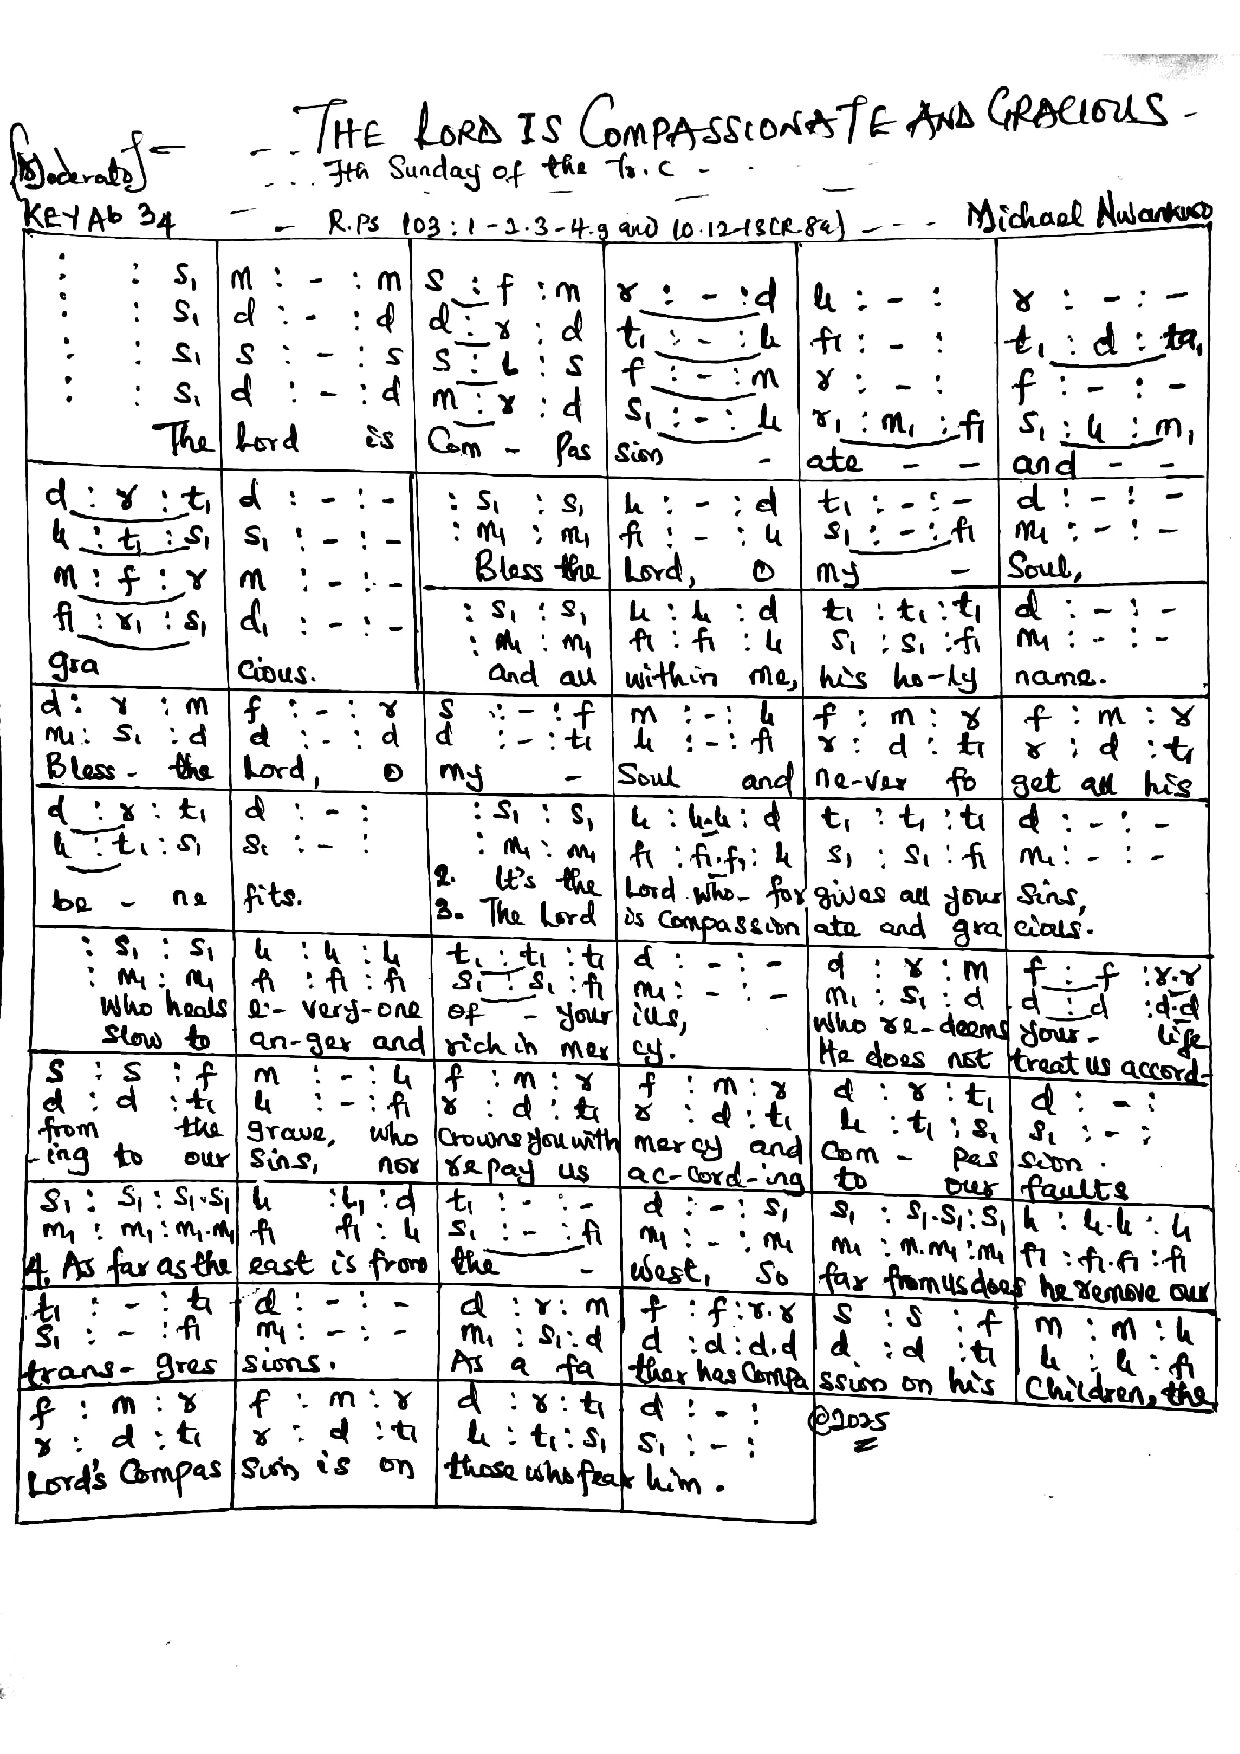 THE LORD IS COMPASSIONATE AND GRACIOUS -
Moderato - 7th Sunday of the Yr. C -
KEY Ab 34 - R.Ps 103:1-2.3-4.9 and 10.12-13(R.8a) - Michael Nwankwo
: : s₁ | m : - : m | s : f : m | r : - : d | l₁ : - : | r : - : -
: : s₁ | d : - : d | d : r : d | t₁ : - : l₁ | f₁ : - : | t₁ : d : ta₁
: : s₁ | s : - : s | s : l : s | f : - : m | r : - : | f : - : -
: : s₁ | d : - : d | m : r : d | s₁ : - : l₁ | r₁ : m₁ : f₁ | s₁ : l₁ : m₁
The | Lord is | Com - Pas | sion - | ate - - | and - -
d : r : t₁ | d : - : - | : s₁ : s₁ | l₁ : - : d | t₁ : - : - | d : - : -
l₁ : t₁ : s₁ | s₁ : - : - | : m₁ : m₁ | f₁ : - : l₁ | s₁ : - : f₁ | m₁ : - : -
Bless the | Lord, O | my - | Soul,
m : f : r | m : - : -
f₁ : r₁ : s₁ | d₁ : - : - | : s₁ : s₁ | l₁ : l₁ : d | t₁ : t₁ : t₁ | d : - : -
: m₁ : m₁ | f₁ : f₁ : l₁ | s₁ : s₁ : f₁ | m₁ : - : -
gra | cious. | and all | within me, | his ho-ly | name.
d : r : m | f : - : r | s : - : f | m : - : l₁ | f : m : r | f : m : r
m₁ : s₁ : d | d : - : d | d : - : t₁ | l₁ : - : f₁ | r : d : t₁ | r : d : t₁
Bless - the | Lord, O | my - | Soul and | ne-ver fo | get all his
d : r : t₁ | d : - : | : s₁ : s₁ | l₁ : l₁.l₁ : d | t₁ : t₁ : t₁ | d : - : -
l₁ : t₁ : s₁ | s₁ : - : | : m₁ : m₁ | f₁ : f₁.f₁ : l₁ | s₁ : s₁ : f₁ | m₁ : - : -
be - ne | fits. | 2. It's the | Lord who - for | gives all your | Sins,
3. The Lord | is compassion | ate and gra | cious.
: s₁ : s₁ | l₁ : l₁ : l₁ | t₁ : t₁ : t₁ | d : - : - | d : r : m | f : f : r.r
: m₁ : m₁ | f₁ : f₁ : f₁ | s₁ : s₁ : f₁ | m₁ : - : - | m₁ : s₁ : d | d : d : d.d
Who heals | e - very-one | of - your | ills, | who re-deems | your - life
Slow to | an-ger and | rich in mer | cy. | He does not | treat us accord-
s : s : f | m : - : l₁ | f : m : r | f : m : r | d : r : t₁ | d : - :
d : d : t₁ | l₁ : - : f₁ | r : d : t₁ | r : d : t₁ | l₁ : t₁ : s₁ | s₁ : - :
from the | grave, who | Crowns you with | mercy and | Com - pas | sion.
-ing to our | Sins, nor | repay us | ac-cord-ing | to our | faults
s₁ : s₁ : s₁.s₁ | l₁ : l₁ : d | t₁ : - : - | d : - : s₁ | s₁ : s₁.s₁ : s₁ | l₁ : l₁.l₁ : l₁
m₁ : m₁ : m₁.m₁ | f₁ f₁ : l₁ | s₁ : - : f₁ | m₁ : - : m₁ | m₁ : m.m₁ : m₁ | f₁ : f₁.f₁ : f₁
4. As far as the | east is from | the - | West, So | far from us does | he remove our
t₁ : - : t₁ | d : - : - | d : r : m | f : f : r.r | s : s : f | m : m : l₁
s₁ : - : f₁ | m₁ : - : - | m₁ : s₁ : d | d : d : d.d | d : d : t₁ | l₁ : l₁ : f₁
trans- gres | sions. | As a fa | ther has Compa | ssion on his | Children, the
f : m : r | f : m : r | d : r : t₁ | d : - : | ©2025
r : d : t₁ | r : d : t₁ | l₁ : t₁ : s₁ | s₁ : - :
Lord's Compas | sion is on | those who fear | him.